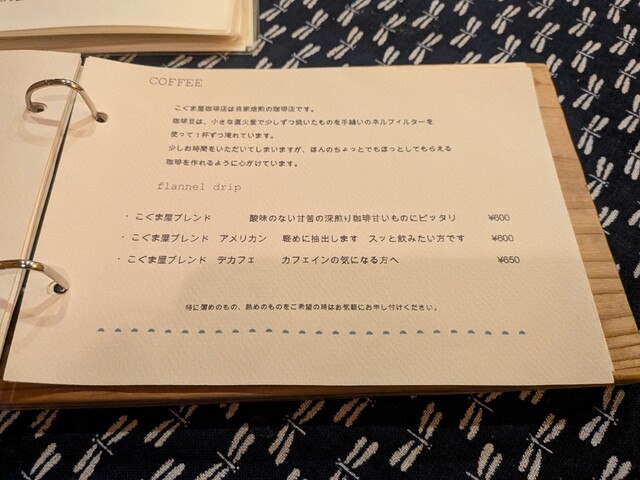 COFFEE
こぐま屋珈琲店は自家焙煎の珈琲店です。
珈琲豆は、小さな直火釜で少しずつ焼いたものを手縫いのネルフィルターを
使って1杯ずつ淹れています。
少しお時間をいただいてしまいますが、ほんのちょっとでもほっとしてもらえる
珈琲を作れるように心がけています。
flannel drip
・こぐま屋ブレンド 酸味のない甘苦の深煎り珈琲甘いものにピッタリ ¥600
・こぐま屋ブレンド アメリカン 軽めに抽出します スッと飲みたい方です ¥600
・こぐま屋ブレンド デカフェ カフェインの気になる方へ ¥650
特に薄めのもの、熱めのものをご希望の時はお気軽にお申し付けください。